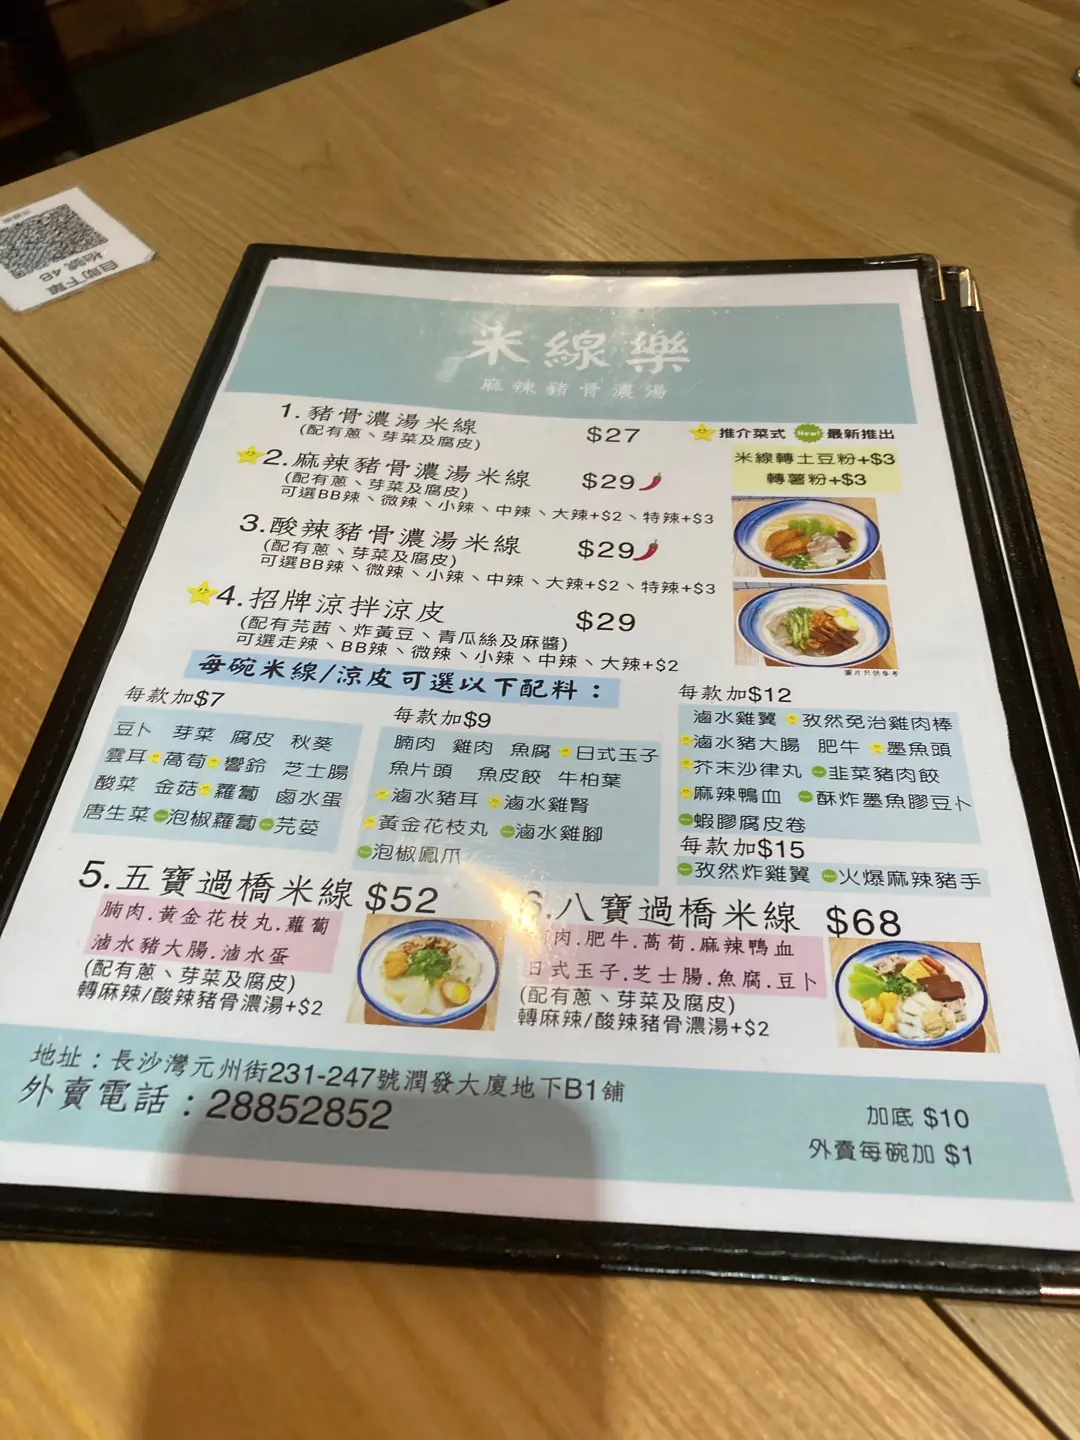 自助下單
枱號 4B
米線樂
麻辣豬骨濃湯
1.豬骨濃湯米線 $27
(配有蔥、芽菜及腐皮)
推介菜式 New! 最新推出
米線轉土豆粉+$3
轉薯粉+$3
2.麻辣豬骨濃湯米線 $29
(配有蔥、芽菜及腐皮)
可選BB辣、微辣、小辣、中辣、大辣+$2、特辣+$3
3.酸辣豬骨濃湯米線 $29
(配有蔥、芽菜及腐皮)
可選BB辣、微辣、小辣、中辣、大辣+$2、特辣+$3
4.招牌涼拌涼皮 $29
(配有芫茜、炸黃豆、青瓜絲及麻醬)
可選走辣、BB辣、微辣、小辣、中辣、大辣+$2
圖片只供參考
每碗米線/涼皮可選以下配料：
每款加$7
豆卜 芽菜 腐皮 秋葵
雲耳 萵荀 響鈴 芝士腸
酸菜 金菇 蘿蔔 鹵水蛋
唐生菜 泡椒蘿蔔 芫荽
每款加$9
腩肉 雞肉 魚腐 日式玉子
魚片頭 魚皮餃 牛柏葉
滷水豬耳 滷水雞腎
黃金花枝丸 滷水雞腳
泡椒鳳爪
每款加$12
滷水雞翼 孜然免治雞肉棒
滷水豬大腸 肥牛 墨魚頭
芥末沙律丸 韭菜豬肉餃
麻辣鴨血 酥炸墨魚膠豆卜
蝦膠腐皮卷
每款加$15
孜然炸雞翼 火爆麻辣豬手
5.五寶過橋米線 $52
腩肉.黃金花枝丸.蘿蔔
滷水豬大腸.滷水蛋
(配有蔥、芽菜及腐皮)
轉麻辣/酸辣豬骨濃湯+$2
6.八寶過橋米線 $68
肉.肥牛.萵荀.麻辣鴨血
日式玉子.芝士腸.魚腐.豆卜
(配有蔥、芽菜及腐皮)
轉麻辣/酸辣豬骨濃湯+$2
地址：長沙灣元州街231-247號潤發大廈地下B1舖
外賣電話：28852852
加底 $10
外賣每碗加 $1